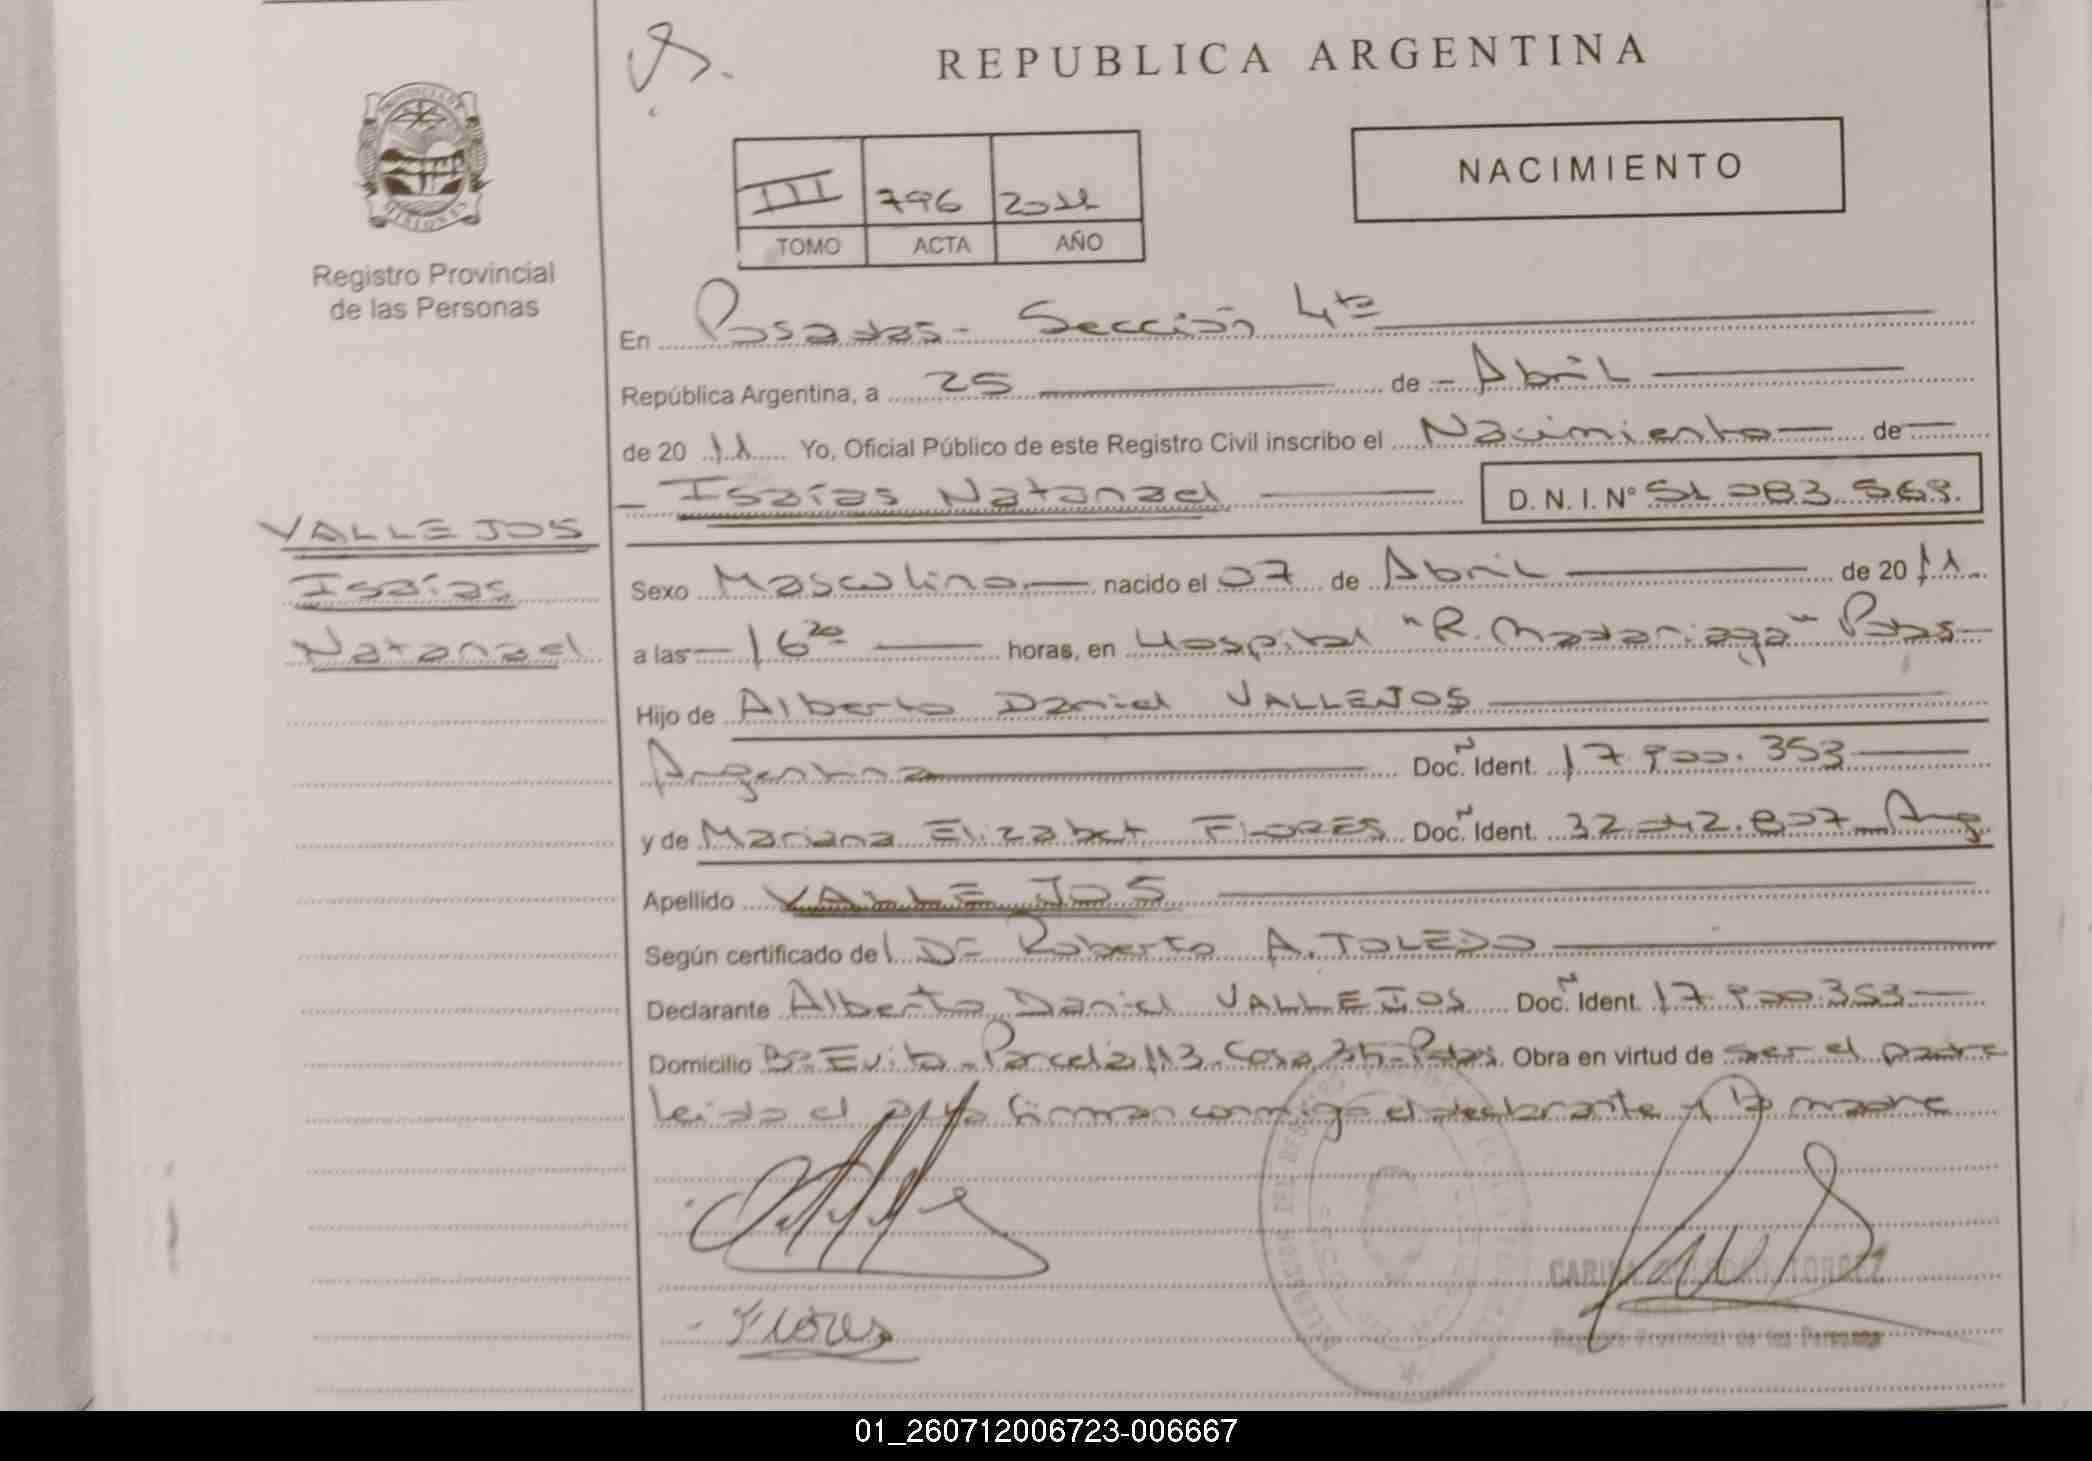 REPUBLICA ARGENTINA
PROVINCIA DE
MISIONES
Registro Provincial
de las Personas
III 796 2011
TOMO ACTA AÑO
NACIMIENTO
En Posadas - Sección 4ta
República Argentina, a 25 de Abril
de 20 11 Yo, Oficial Público de este Registro Civil inscribo el Nacimiento de
Isaías Natanael D. N. I. N° 51.083.569.
VALLEJOS
Isaías
Natanael
Sexo Masculino nacido el 07 de Abril de 20 11
a las 16 20 horas, en Hospital "R. Madariaga" Pdas
Hijo de Alberto Daniel VALLEJOS
Argentina Doc. Ident. 17.900.353
y de Mariana Elizabet FLORES Doc. Ident. 32.042.807 Arg
Apellido VALLEJOS
Según certificado del Dr Roberto A. TOLEDO
Declarante Alberto Daniel VALLEJOS Doc. Ident. 17.900.353
Domicilio Bº Evita - Parcela 113 - Casa Pdas. Obra en virtud de ser el padre
leida el acta firman conmigo el declarante y la madre
Flores
CARINA TORREZ
Registro Provincial de las Personas
01_260712006723-006667